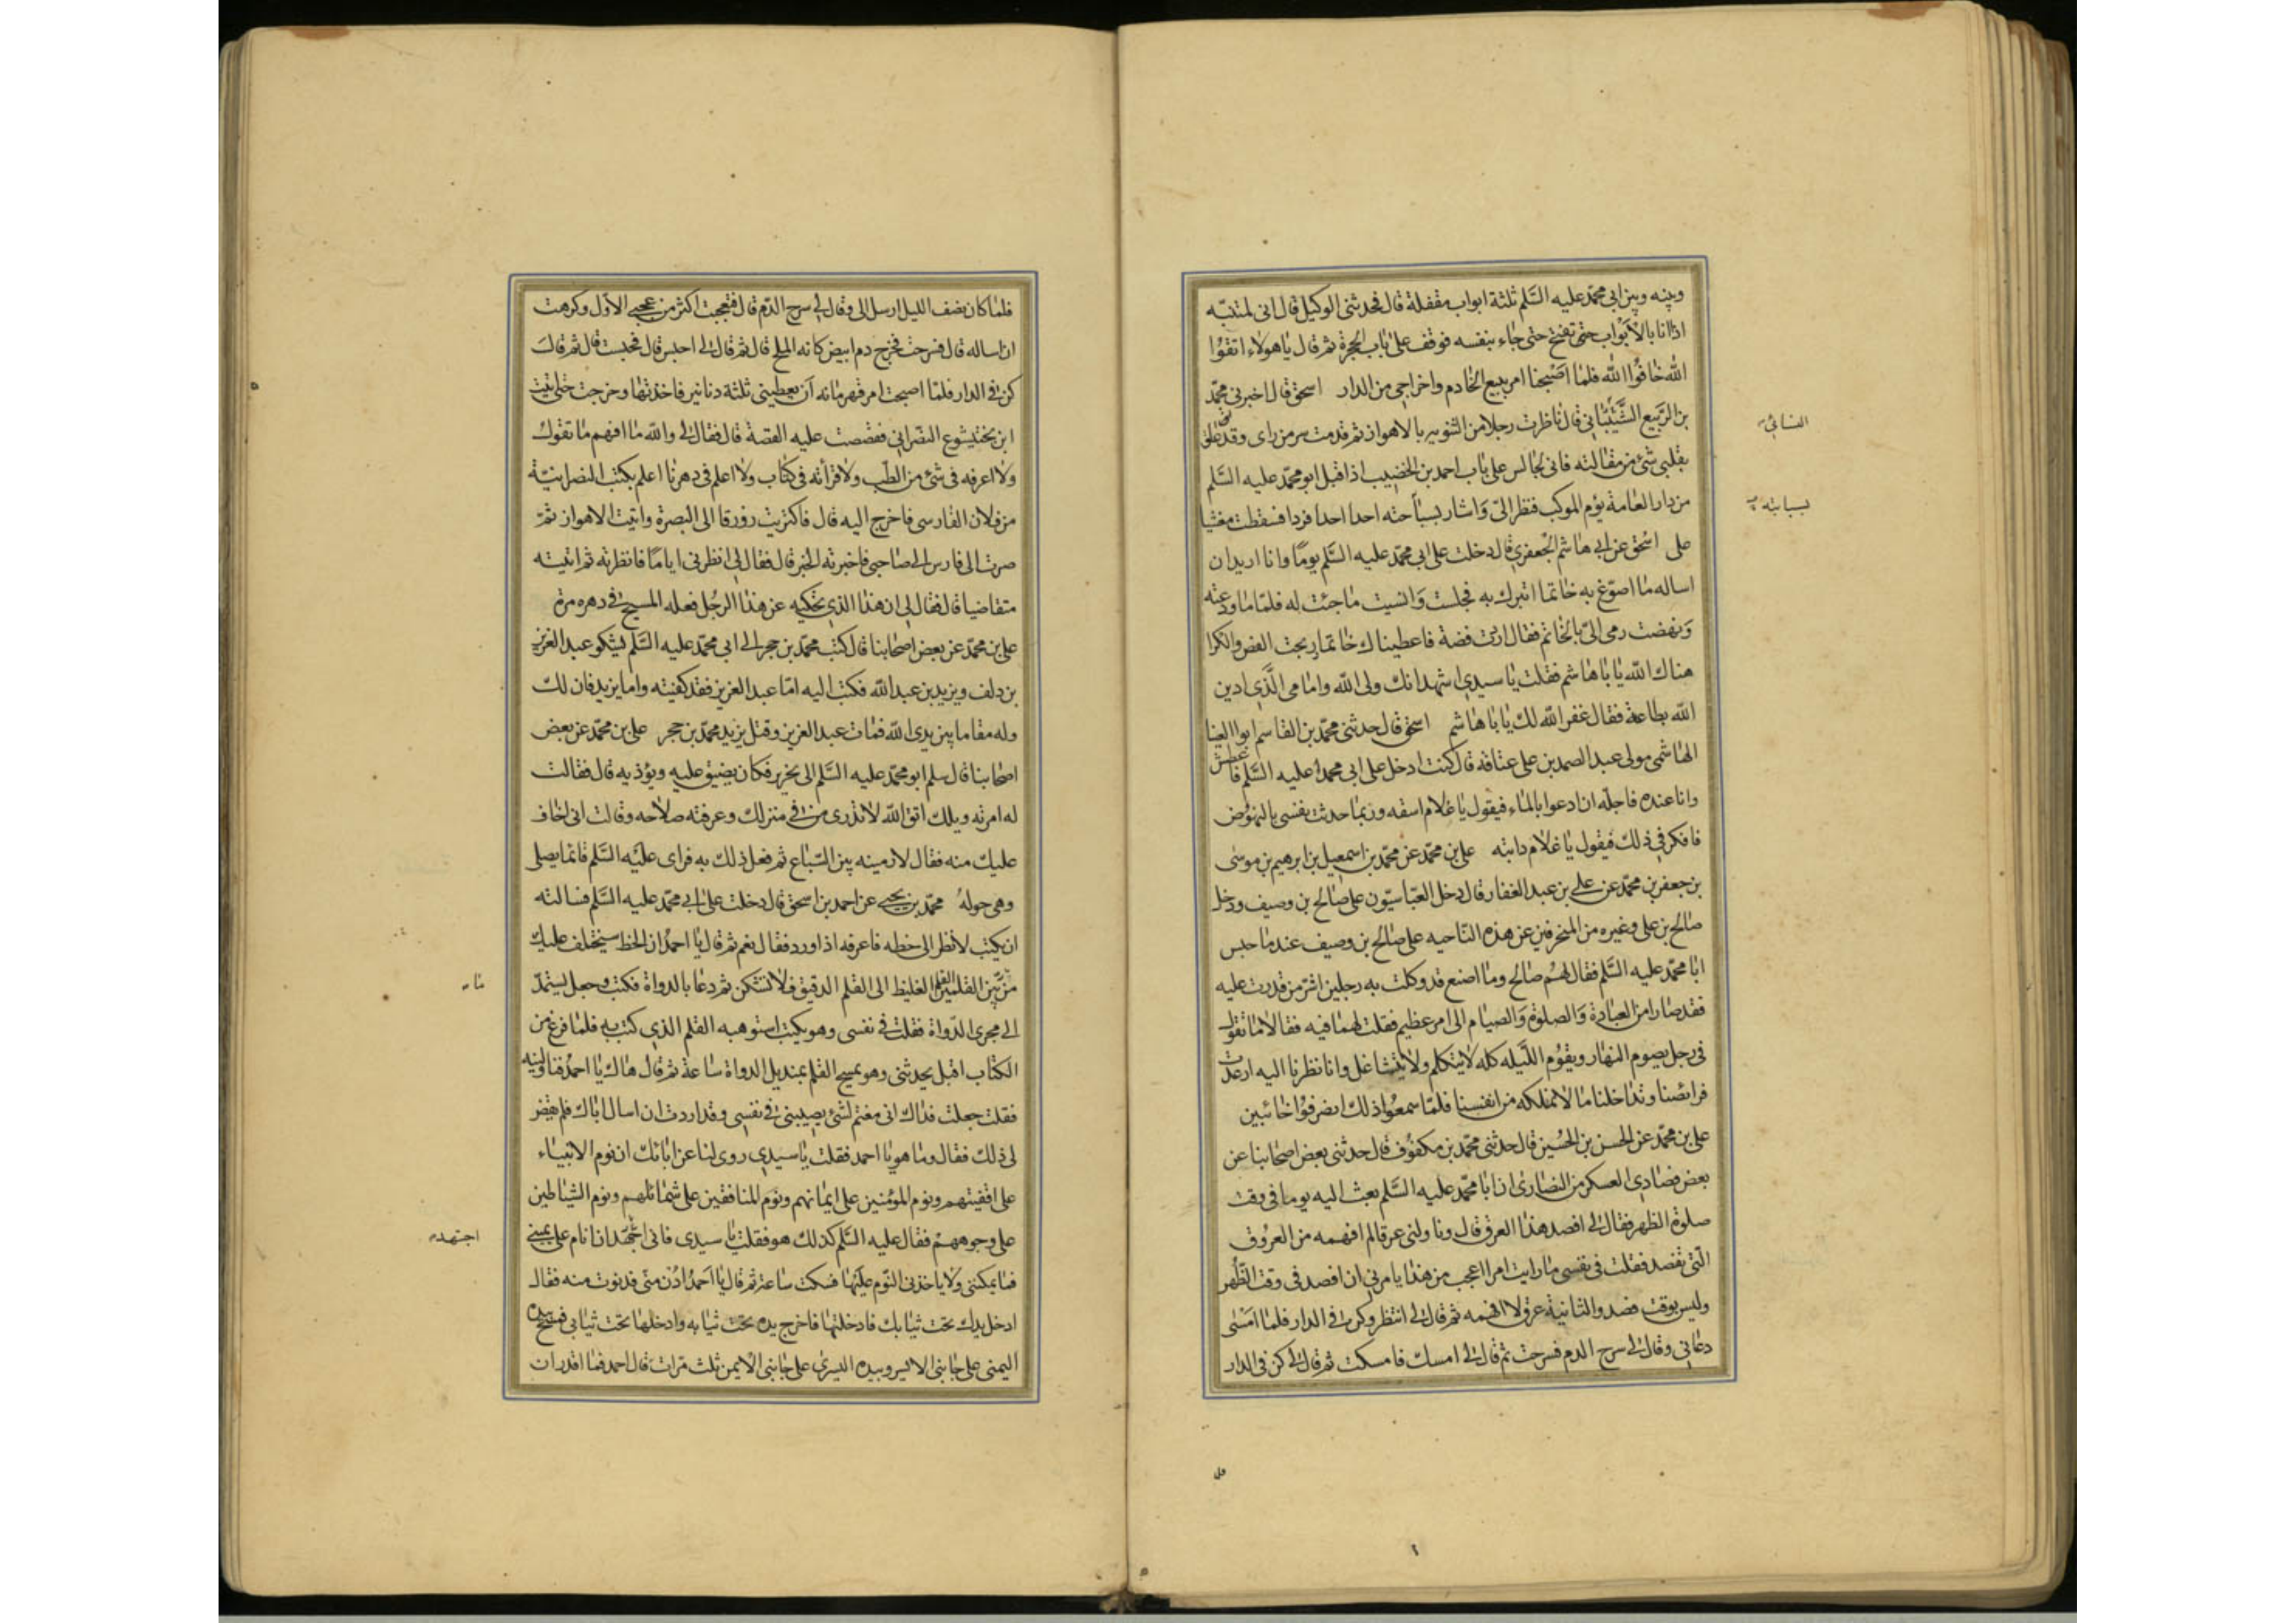 وبينه وبين ابى محمّد عليه السَّلم ثلثة ابواب مقفلة قال فحدثنى الوكيل قال انى لمنتبّه
اذ انا بالأبواب حتى تفتح حتى جاء بنفسه فوقف على باب الحجرة ثم قال ياهولاء اتقوا
الله خافوا الله فلما اصبحنا امر ببيع الخادم واخراجى من الدار اسحق قال اخبرنى محمّد
بن الربيع الشيبانى قال ناظرت رجلا من الثنوية بالاهواز ثم قدمت سر من راى وقد علق
بقلبى شئ من مقالته فانى لجالس على باب احمد بن الخضيب اذ اقبل ابو محمّد عليه السَّلم
من دار العامة يؤم الموكب فنظر الىّ واشار بسباحته احدا احدا فردا فسقطت مغشيا
على اسحق عن ابى هاشم الجعفرى قال دخلت على ابى محمّد عليه السَّلم يوما وانا اريد ان
اساله ما اصوغ به خاتما اتبرك به فجلست وانسيت ما جئت له فلما ودعته
ونهضت رمى الىّ بالخاتم فقال اردت فضة فاعطيناك خاتما ربحت الفص والكرا
هناك الله يا باهاشم فقلت يا سيدى اشهد انك ولى الله وامامى الَّذى ادين
الله بطاعته فقال غفر الله لك يا باهاشم اسحق قال حدثنى محمّد بن القاسم ابو العينا
الهاشمى مولى عبد الصمد بن على عتاقه قال كنت ادخل على ابى محمد عليه السَّلم فاعطش
وانا عنده فاجلّه ان ادعوا بالماء فيقول يا غلام اسقه وربما حدثت نفسى بالنهوض
فافكر فى ذلك فيقول يا غلام دابته على بن محمّد عن محمّد بن اسمعيل بن ابرهيم بن موسى
بن جعفر بن محمّد عن على بن عبد الغفار قال دخل العبّاسيّون على صالح بن وصيف ودخل
صالح بن على وغيره من المنحرفين عن هذه النّاحيه على صالح بن وصيف عند ما حبس
ابا محمّد عليه السَّلم فقال لهم صالح وما اصنع قد وكلت به رجلين اشرّ من قدرت عليه
فقد صارا من العبادة والصلوة والصيام الى امر عظيم فقلت لهما فيه فقالا ما تقول
فى رجل يصوم النهار ويقوم اللّيله كله لا يتكلم ولا يتشاغل وانا نظرنا اليه ارعدت
فرائصنا وتداخلنا ما لا نملكه من انفسنا فلمّا سمعوا ذلك انصرفوا خائبين
على بن محمّد عن الحسن بن الحسين قال حدثنى محمّد بن مكفوف قال حدثنى بعض اصحابنا عن
بعض فصادى العسكر من النصارى ان ابا محمّد عليه السَّلم بعث اليه يوما فى وقت
صلوة الظهر فقال لى افصد هذا العرق قال وناولنى عرقا لم افهمه من العروق
الّتى تفصد فقلت فى نفسى ما رايت امرا اعجب من هذا يامرنى ان افصد فى وقت الظهر
وليس بوقت فصد والثانية عرق لا افهمه ثم قال لى انتظر وكن فى الدار فلما امسى
دعانى وقال لى سرح الدم فسرحت ثم قال لى امسك فامسكت ثم قال لى كن فى الدار
النسائى
بسبابته
فلما كان نصف الليل ارسل الى وقال لى سرح الدّم قال فتعجبت اكثر من عجبى الاوّل وكرهت
ان اساله قال فسرحت فخرج دم ابيض كانه الملح قال ثم قال لى احبس قال فحبست قال ثم قال
كن فى الدار فلمّا اصبحت امر قهرمانه ان يعطينى ثلثة دنانير فاخذتها وخرجت حتى اتيت
ابن بختيشوع النصرانى فقصصت عليه القصة قال فقال لى والله ما افهم ما تقول
ولا اعرفه فى شئ من الطّب ولا قرأته فى كتاب ولا اعلم فى دهرنا اعلم بكتب النصرانيّة
من فلان الفارسى فاخرج اليه قال فاكتريت زورقا الى البصرة واتيت الاهواز ثمّ
صرت الى فارس الى صاحبى فاخبرته الخبر قال فقال لى انظرنى اياما فانظرته ثم اتيته
متقاضيا قال فقال لى ان هذا الذى تحكيه عن هذا الرجل فعله المسيح فى دهره مرة
على بن محمّد عن بعض اصحابنا قال كتب محمّد بن حجر الى ابى محمّد عليه السَّلم يشكو عبد العزيز
بن دلف ويزيد بن عبد الله فكتب اليه امّا عبد العزيز فقد كفيته واما يزيد فان لك
وله مقاما بين يدى الله فمات عبد العزيز وقتل يزيد محمّد بن حجر على بن محمّد عن بعض
اصحابنا قال سلم ابو محمّد عليه السَّلم الى نحرير فكان يضيق عليه ويؤذيه قال فقالت
له امرته ويلك اتق الله لا تدرى من فى منزلك وعرفته صلاحه وقالت انى اخاف
عليك منه فقال لارمينه بين السّباع ثم فعل ذلك به فراى عليه السَّلم قائما يصلى
وهى حوله محمّد بن يحيى عن احمد بن اسحق قال دخلت على ابى محمّد عليه السَّلم فسالته
ان يكتب لانظر الى خطه فاعرفه اذا ورد فقال نعم ثم قال يا احمد ان الخط سيختلف عليك
من بين القلم الغليظ الى القلم الدقيق فلا تشكن ثم دعا بالدواة فكتب وجعل يستمدّ
الى مجرى الدّواة فقلت فى نفسى وهو يكتب استوهبه القلم الذى كتب به فلما فرغ من
الكتاب اقبل يحدثنى وهو يمسح القلم بمنديل الدواة ساعة ثم قال هاك يا احمد فناولنيه
فقلت جعلت فداك انى مغتم لشئ يصيبنى فى نفسى وقد اردت ان اسال اباك فلم يقض
لى ذلك فقال وما هو يا احمد فقلت يا سيدى روى لنا عن ابائك ان نوم الانبياء
على اقفيتهم ونوم المؤمنين على ايمانهم ونوم المنافقين على شمائلهم ونوم الشياطين
على وجوههم فقال عليه السَّلم كذلك هو فقلت يا سيدى فانى اجهد ان انام على يمينى
فما يمكننى ولا ياخذنى النّوم عليها فسكت ساعة ثم قال يا احمد ادن منّى فدنوت منه فقال
ادخل يدك تحت ثيابك فادخلتها فاخرج يده تحت ثيابه وادخلها تحت ثيابى فمسح بيده
اليمنى على جانبى الايسر وبيده اليسرى على جانبى الايمن ثلث مرّات قال احمد فما اقدر ان
ما
اجتهد